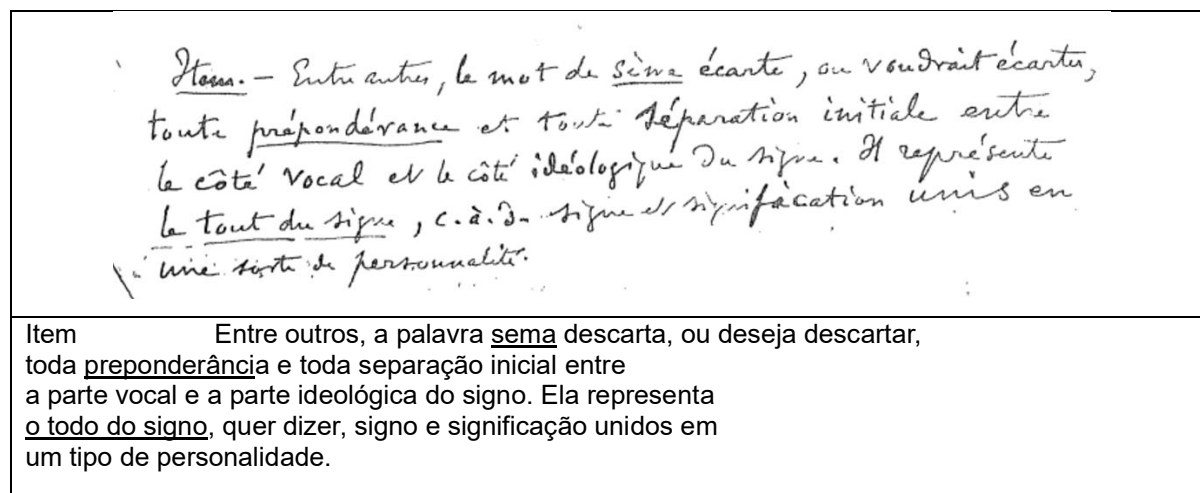 Item. — Entre autres, le mot de sème écarte, ou voudrait écarter,
toute prépondérance et toute séparation initiale entre
le côté vocal et le côté idéologique du signe. Il représente
le tout du signe, c.à.d. signe et signification unis en
une sorte de personnalité.
Item Entre outros, a palavra sema descarta, ou deseja descartar,
toda preponderância e toda separação inicial entre
a parte vocal e a parte ideológica do signo. Ela representa
o todo do signo, quer dizer, signo e significação unidos em
um tipo de personalidade.